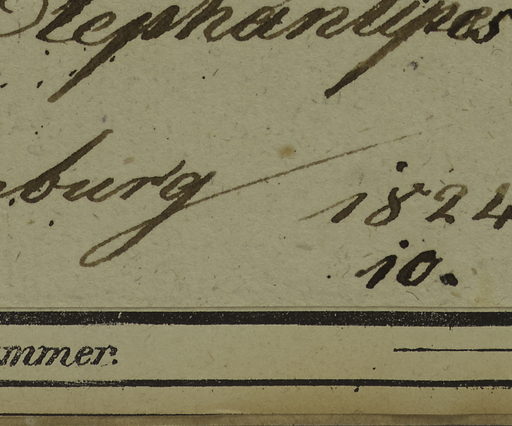 Elephantipes
burg 1824
10.
ummer.